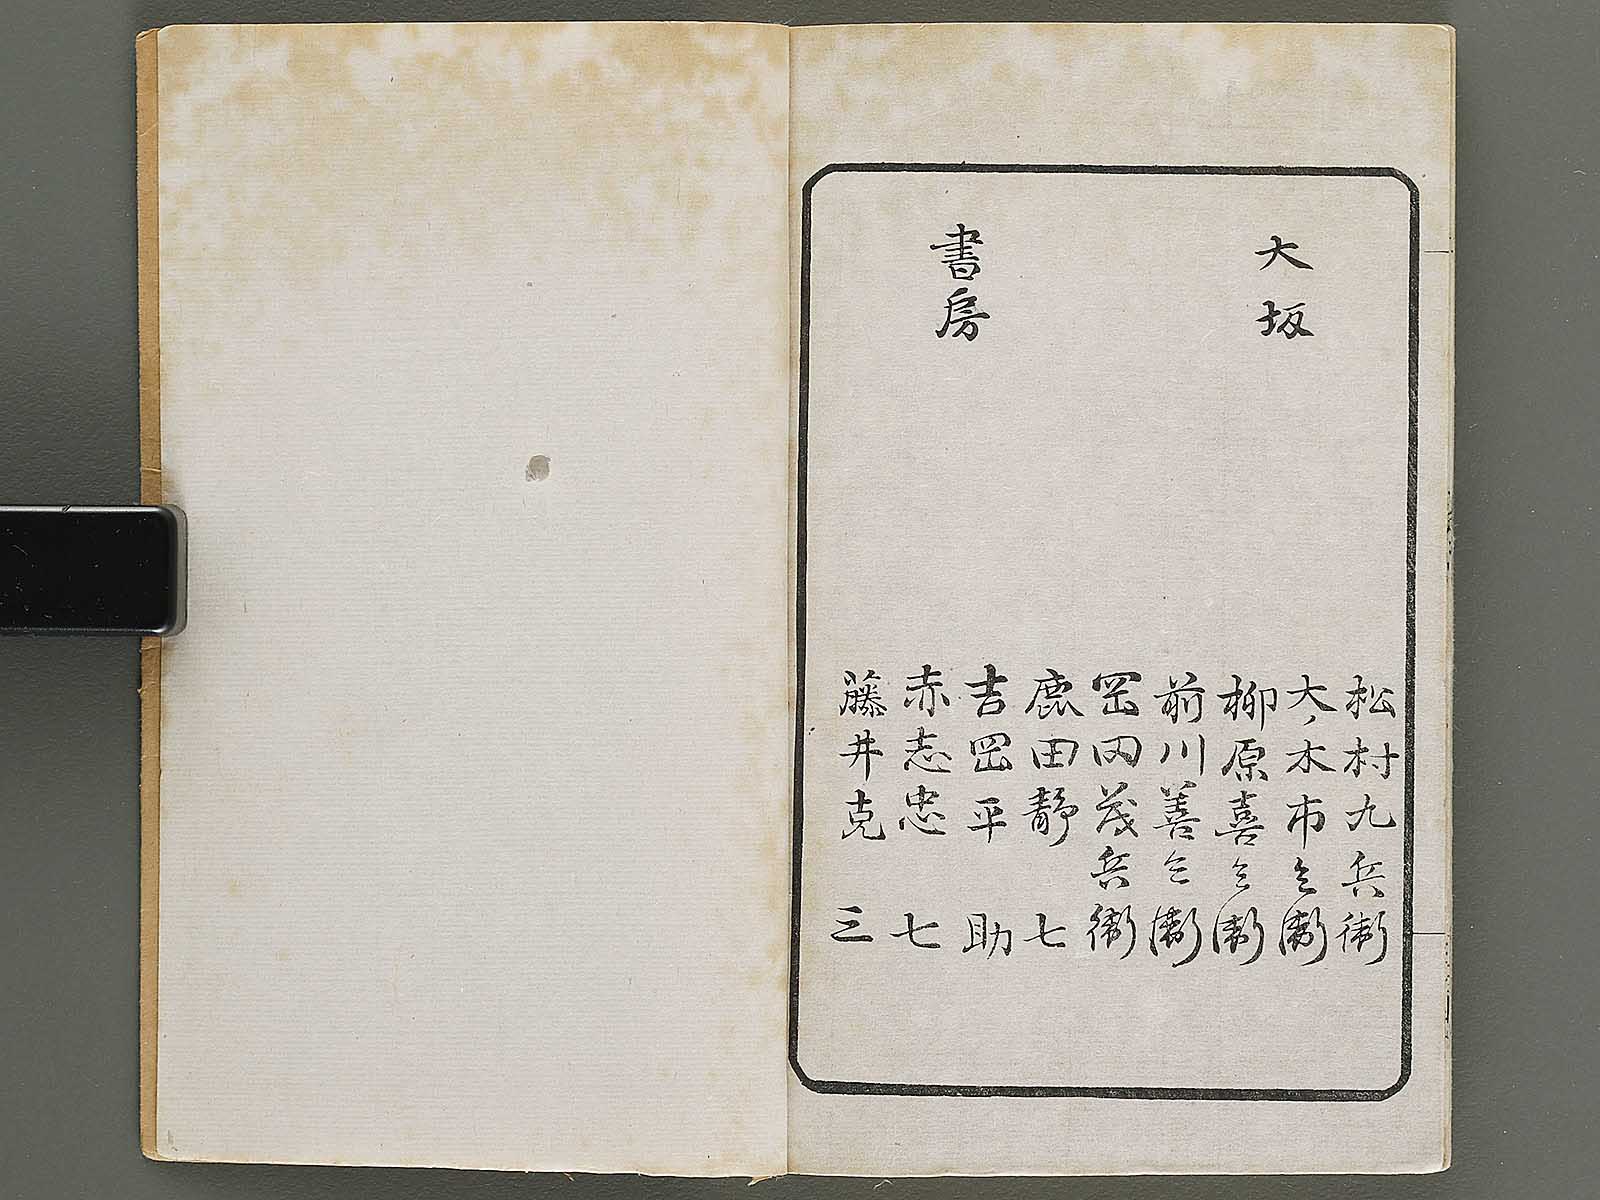 大坂
書房
松村九兵衛
大ノ木市兵衛
柳原喜兵衛
前川善兵衛
岡田茂兵衛
鹿田静七
吉岡平助
赤志忠七
藤井克三